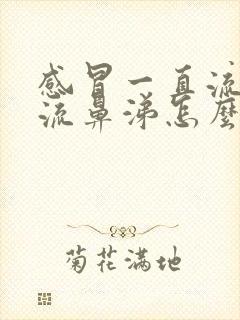 感冒一直流
流鼻涕怎麼
菊花满地